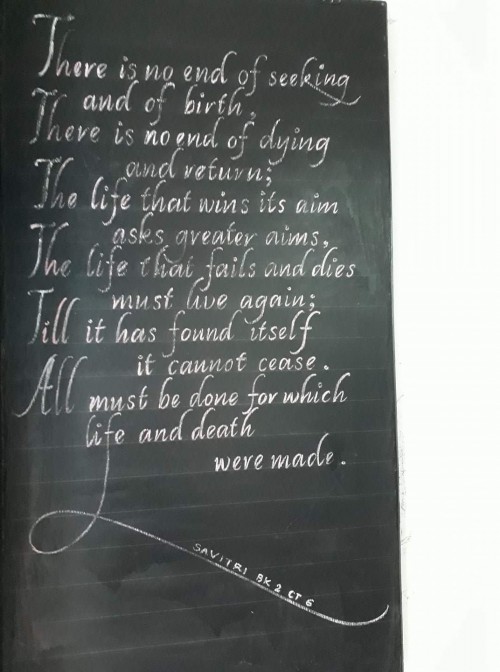 There is no end of seeking
and of birth,
There is no end of dying
and return;
The life that wins its aim
asks greater aims,
The life that fails and dies
must live again;
Till it has found itself
it cannot cease.
All must be done for which
life and death
were made.
SAVITRI BK 2 CT 6